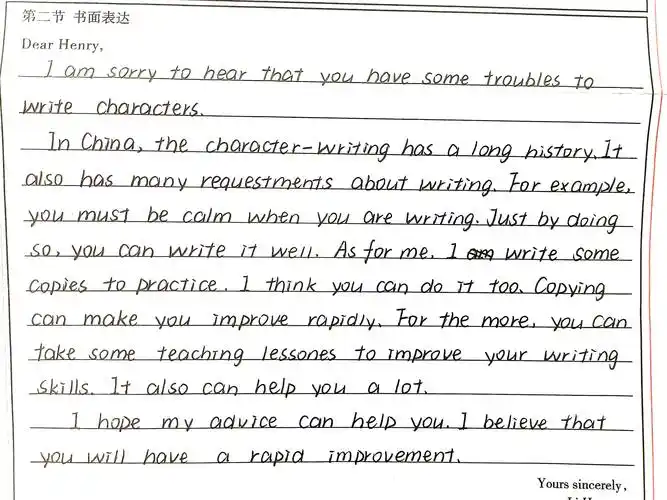 第二节 书面表达
Dear Henry,
I am sorry to hear that you have some troubles to
write characters.
In China, the character-writing has a long history. It
also has many requestments about writing. For example,
you must be calm when you are writing. Just by doing
so, you can write it well. As for me, I am write some
copies to practice. I think you can do it too. Copying
can make you improve rapidly. For the more, you can
take some teaching lessones to improve your writing
skills. It also can help you a lot.
I hope my advice can help you. I believe that
you will have a rapid improvement.
Yours sincerely,